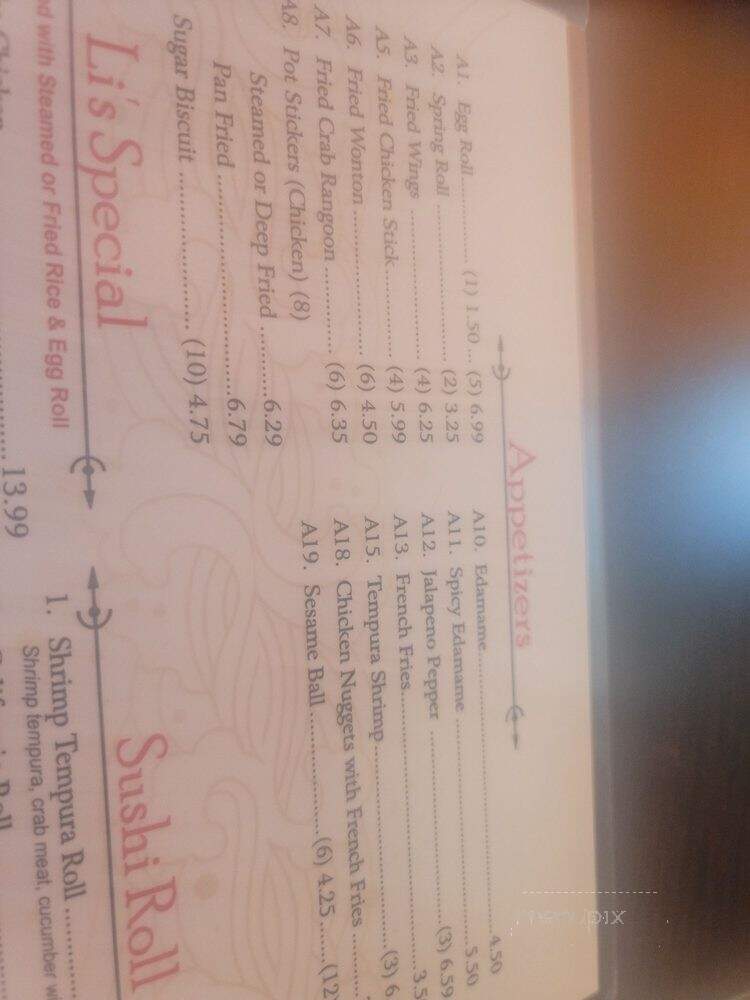 Appetizers
A1. Egg Roll............... (1) 1.50 ... (5) 6.99
A2. Spring Roll ........................... (2) 3.25
A3. Fried Wings .......................... (4) 6.25
A5. Fried Chicken Stick.............. (4) 5.99
A6. Fried Wonton ........................ (6) 4.50
A7. Fried Crab Rangoon ............. (6) 6.35
A8. Pot Stickers (Chicken) (8)
Steamed or Deep Fried ...........6.29
Pan Fried .................................6.79
Sugar Biscuit ....................... (10) 4.75
A10. Edamame.......................................4.50
A11. Spicy Edamame ..............................5.50
A12. Jalapeno Pepper ........................(3) 6.59
A13. French Fries.....................................3.5
A15. Tempura Shrimp..............................(3) 6
A18. Chicken Nuggets with French Fries ..........
A19. Sesame Ball ....................(6) 4.25 ......(12)
Li's Special
ed with Steamed or Fried Rice & Egg Roll
13.99
Sushi Roll
1. Shrimp Tempura Roll ............
Shrimp tempura, crab meat, cucumber wi
Roll